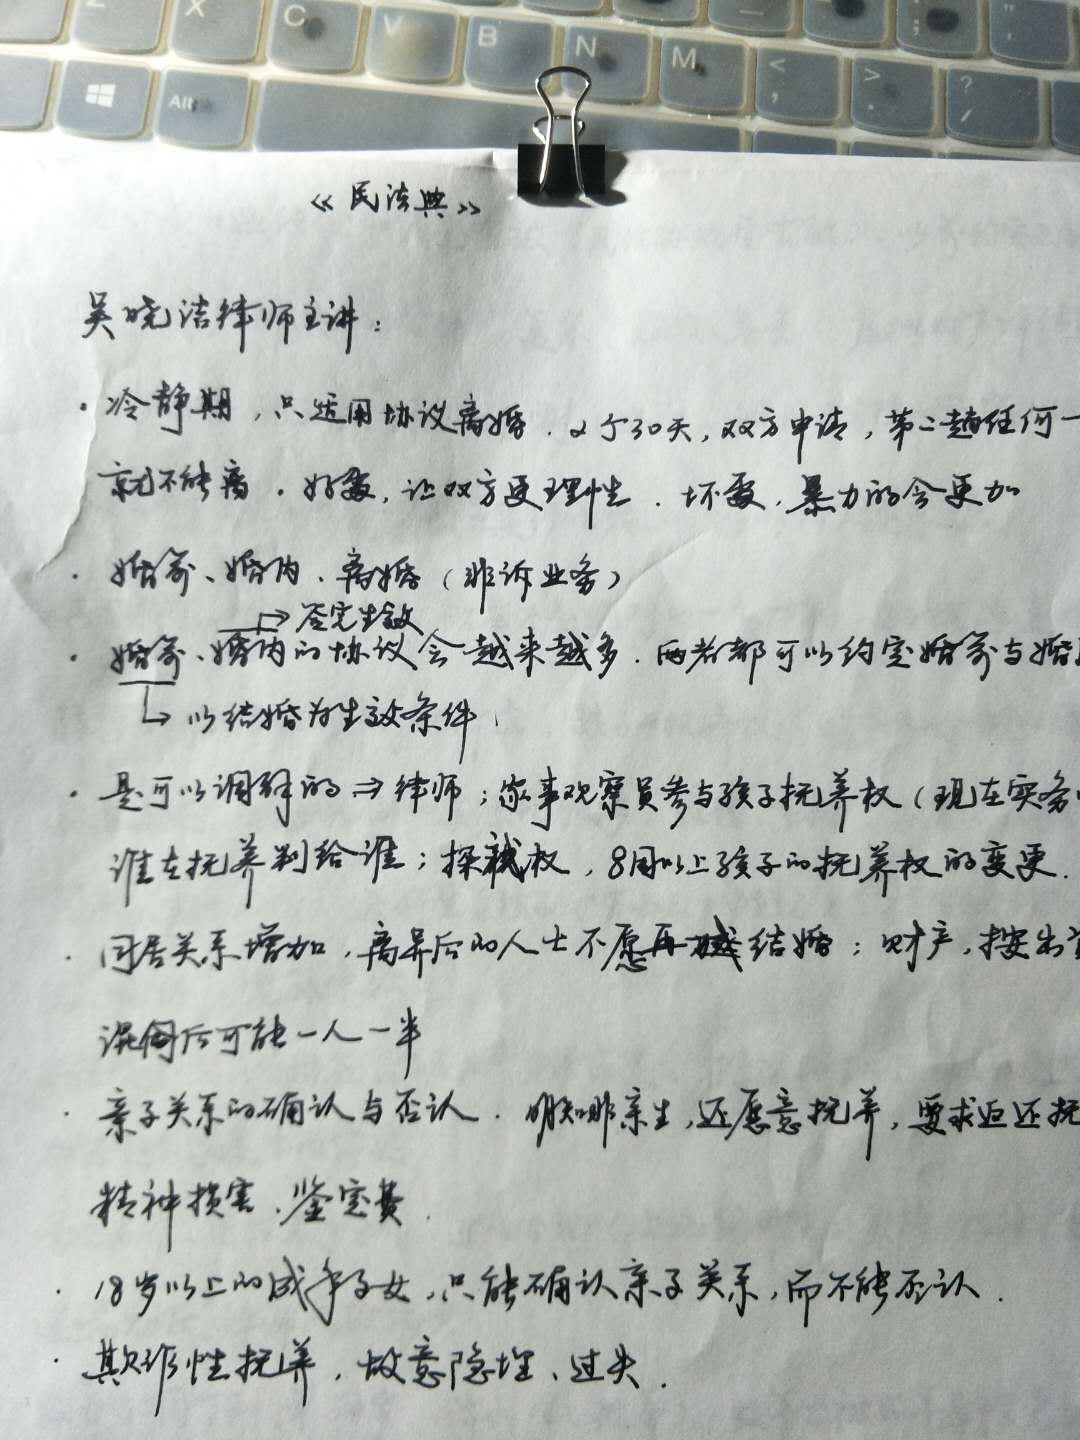 Z X C V B N M < > ? /
Alt
《民法典》
吴晓洁律师主讲：
· 冷静期，只适用协议离婚．2个30天，双方申请，第二趟任何一
就不能离．好处，让双方更理性．坏处，暴力的会更加
· 婚前、婚内、离婚（非诉业务）
→签完生效
· 婚前、婚内的协议会越来越多．两者都可以约定婚前与婚
↳ 以结婚为生效条件．
· 是可以调解的⇒律师；家事观察员参与孩子抚养权（现在实务
谁在抚养判给谁；探视权，8周以上孩子的抚养权的变更．
· 同居关系增加，离异后的人士不愿再结婚；财产，按出资
混同后可能一人一半
· 亲子关系的确认与否认．明知非亲生，还愿意抚养，要求返还抚
精神损害、鉴定费．
· 18岁以上的成年子女，只能确认亲子关系，而不能否认．
· 欺诈性抚养，故意隐埋、过失．